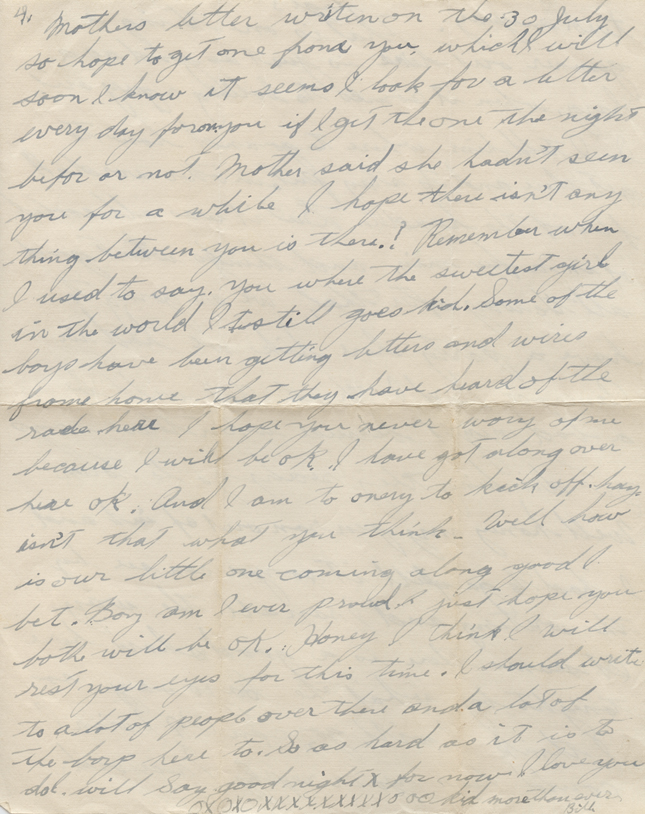 4. Mothers letter written on the 30 July
so hope to get one from you, which I will
soon I know it seems I look for a letter
every day from you if I get the one the night
befor or not. Mother said she hadn't seen
you for a while I hope there isn't any
thing between you is there.? Remember when
I used to say. you where the sweetest girl
in the world I still goes kid. Some of the
boys have been getting letters and wires
frome home that they have heard of the
rade here I hope you never wory of me
because I will be ok. I have got along over
here ok. And I am to onery to kick off. hay.
isn't that what you think - Well how
is our little one coming along good I
bet. Boy am I ever proud I just hope you
both will be ok. Honey I think I will
rest your eyes for this time. I should write
to a lot of people over there and a lot of
the boys here to. So as hard as it is to
do I will say good night for now I love you
kid more than ever
Bill